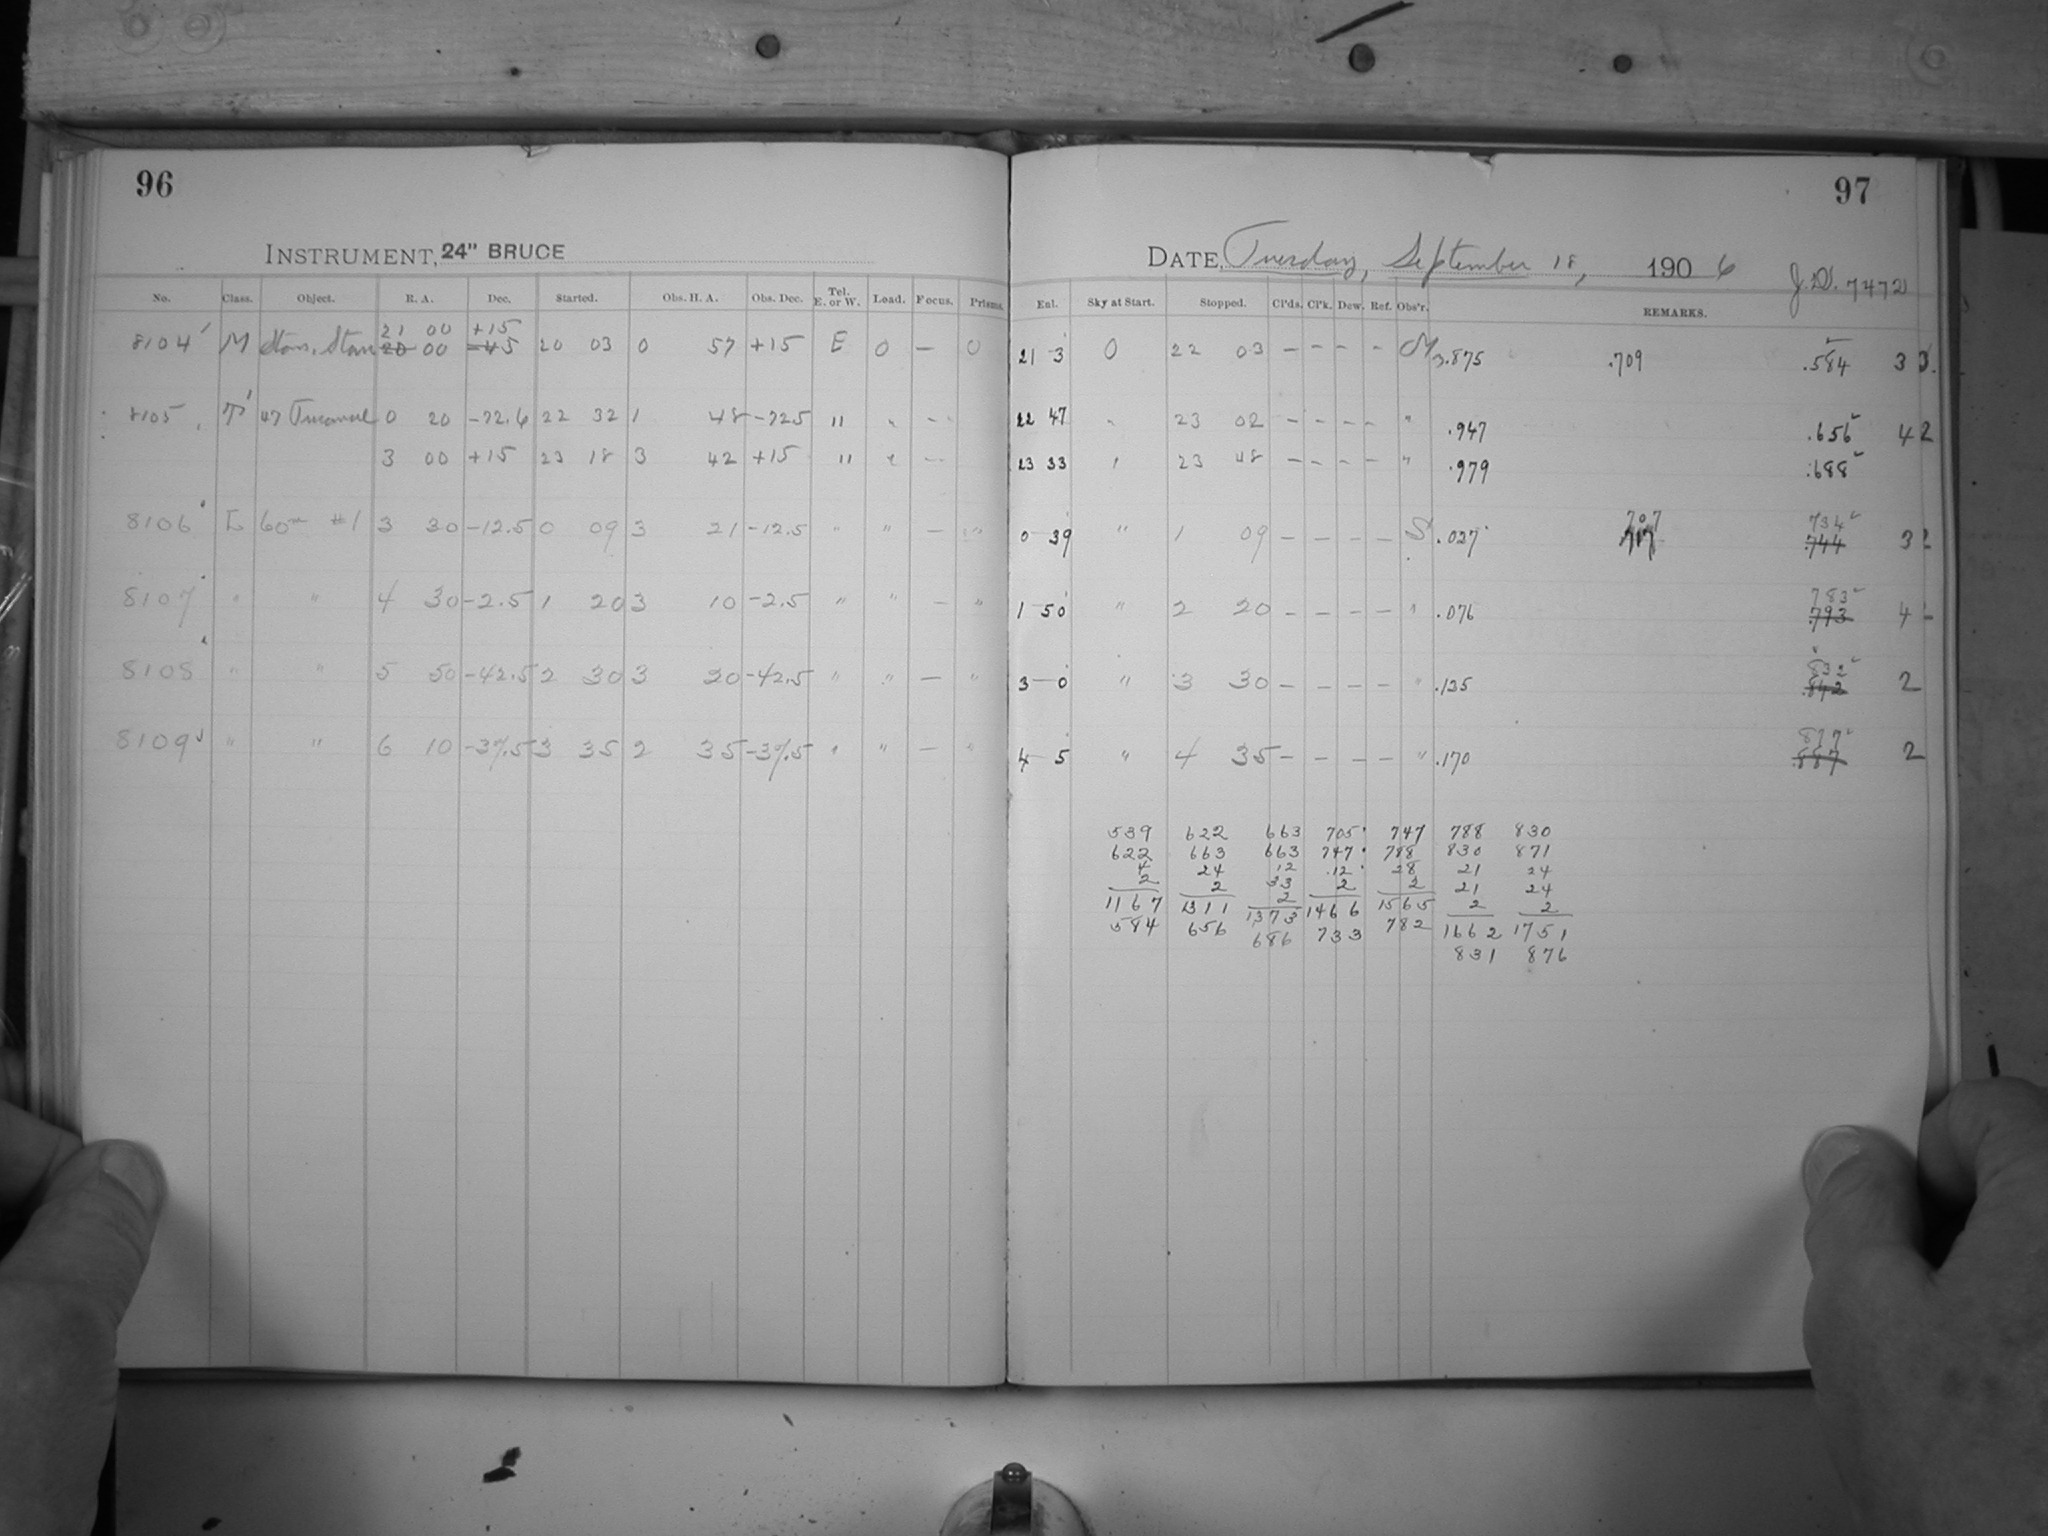 96
INSTRUMENT, 24" BRUCE
No. Class. Object. R. A. Dec. Started. Obs. H. A. Obs. Dec. Tel. E. or W. Load. Focus. Prisms.
21 00 +15
8104 M Stan. Stars 20 00 -45 20 03 0 57 +15 E 0 — 0
8105 47 Tucanae 0 20 -72.6 22 32 1 48 -72.5 " " —
3 00 +15 23 18 3 42 +15 " —
8106 L 60m #1 3 30 -12.5 0 09 3 21 -12.5 " " — "
8107 " " 4 30 -2.5 1 20 3 10 -2.5 " " — "
8108 " " 5 50 -42.5 2 30 3 20 -42.5 " " — "
8109 " " 6 10 -37.5 3 35 2 35 -37.5 " " — "
97
DATE, Tuesday, September 18, 1906 J.D. 7472
Exl. Sky at Start. Stopped. Cl'ds. Cl'k. Dew. Ref. Obs'r. REMARKS.
21 3 0 22 03 — — — — M 3.875 .709 .584 3
22 47 " 23 02 — — — — " .947 .656 42
23 33 23 48 — — — — " .979 .688
707 734
0 39 " 1 09 — — — — S .027 .744 3
783
1 50 " 2 20 — — — — " .076 .793 4
832
3 0 " 3 30 — — — — " .125 .842 2
877
4 5 " 4 35 — — — — " .170 .887 2
539 622 663 705 747 788 830
622 663 663 747 788 830 871
4 24 12 12 28 21 24
2 2 33 2 2 21 24
2 2 2
1167 1311 1373 1466 1565 1662 1751
584 656 686 733 782 831 876